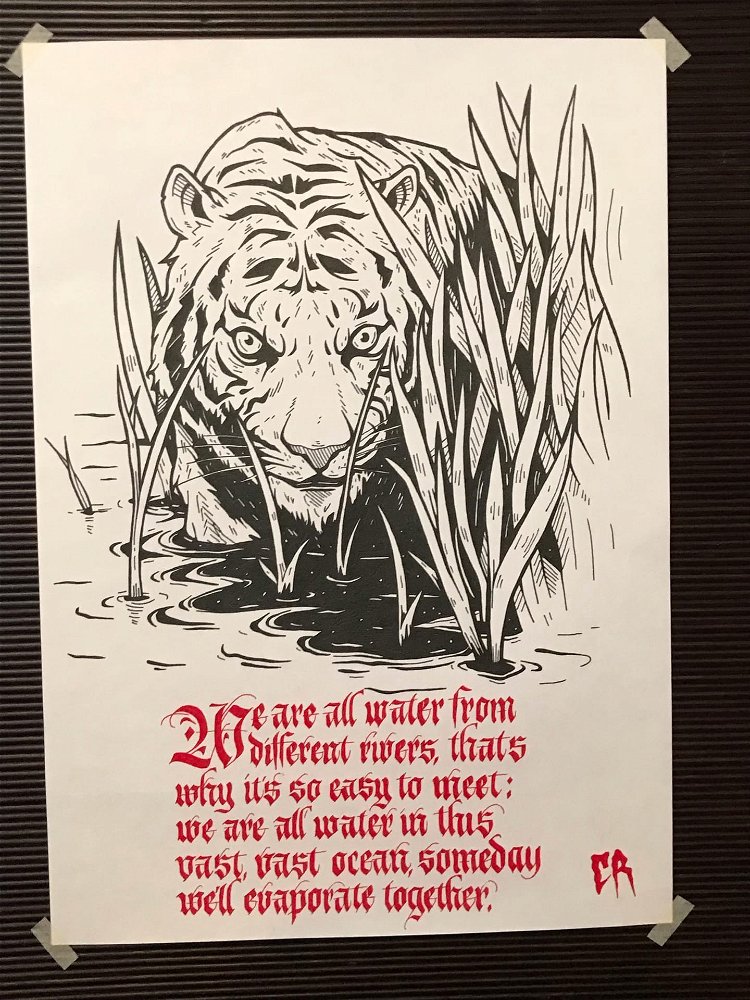 We are all water from
different rivers, thats
why it's so easy to meet;
we are all water in this
vast, vast ocean, someday
we'll evaporate together.
CR